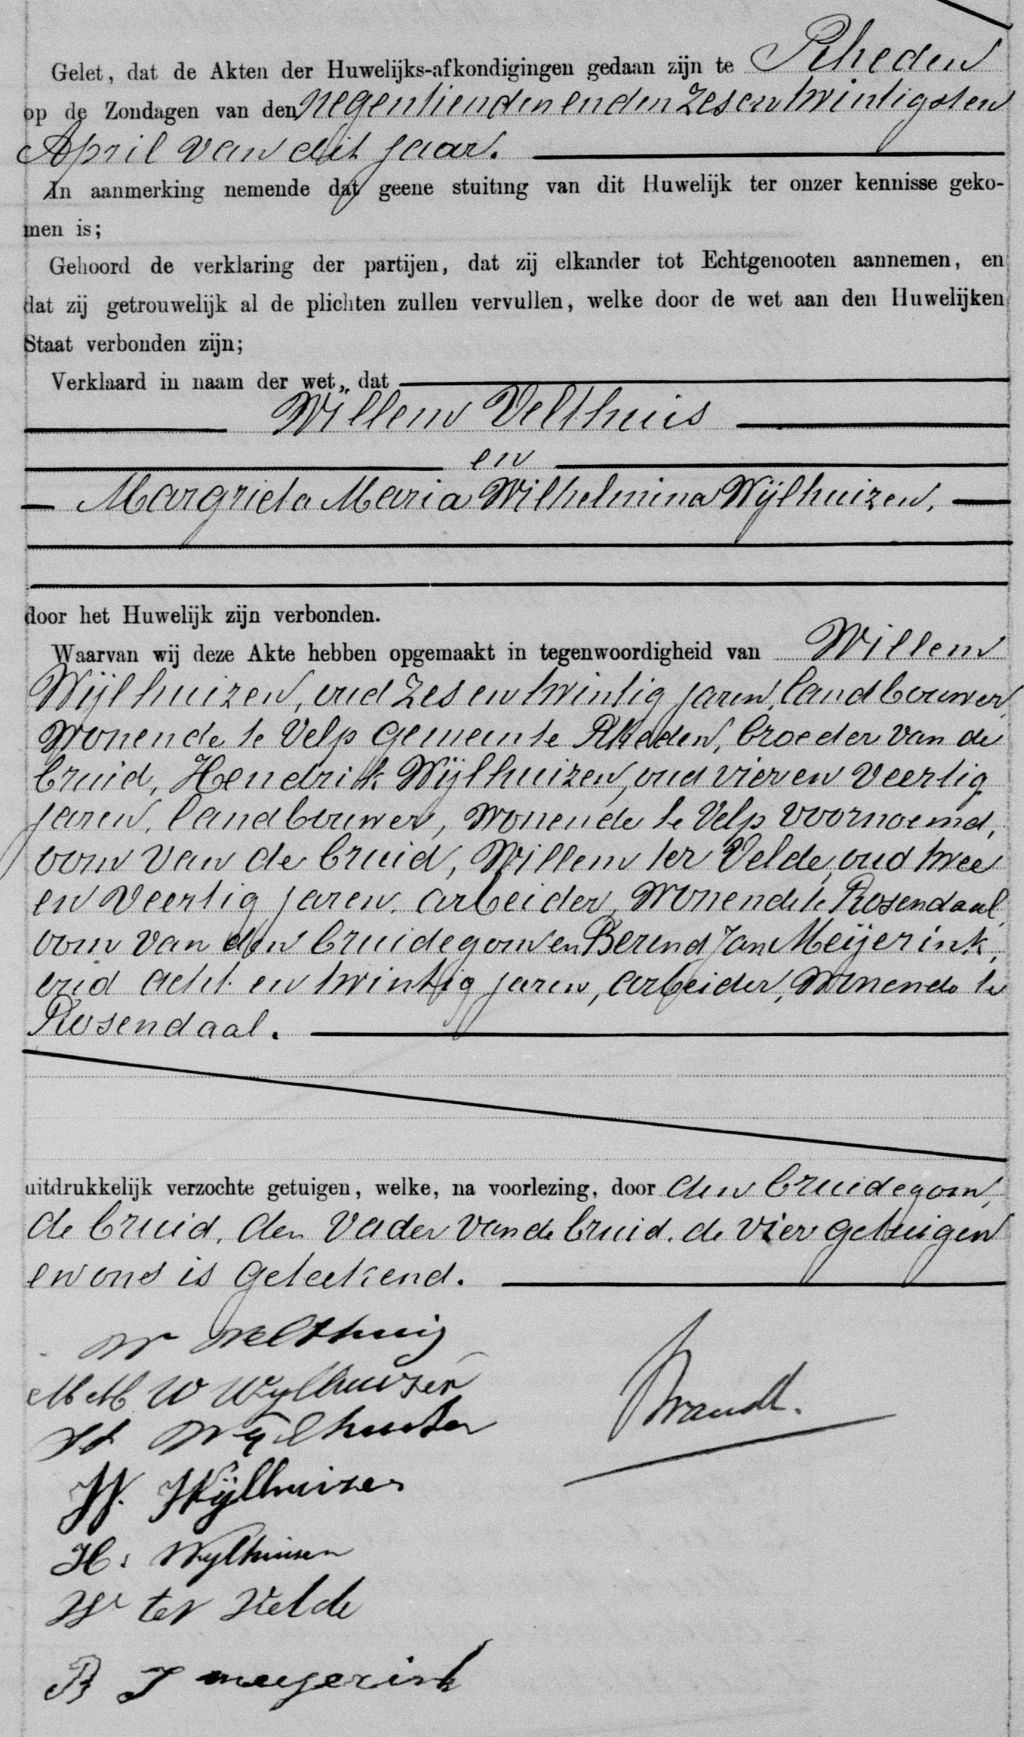 Gelet, dat de Akten der Huwelijks-afkondigingen gedaan zijn te Rheden
op de Zondagen van den negentienden en den zes en twintigsten
April van dit jaar.
In aanmerking nemende dat geene stuiting van dit Huwelijk ter onzer kennisse geko-
men is;
Gehoord de verklaring der partijen, dat zij elkander tot Echtgenooten aannemen, en
dat zij getrouwelijk al de plichten zullen vervullen, welke door de wet aan den Huwelijken
Staat verbonden zijn;
Verklaard in naam der wet, dat
Willem Velthuis
en
Margrieta Maria Wilhelmina Wijlhuizen,
door het Huwelijk zijn verbonden.
Waarvan wij deze Akte hebben opgemaakt in tegenwoordigheid van Willem
Wijlhuizen, oud zes en twintig jaren, landbouwer,
wonende te Velp gemeente Rheden, broeder van de
bruid, Hendrik Wijlhuizen, oud vier en veertig
jaren, landbouwer, wonende te Velp voornoemd,
oom van de bruid, Willem ter Velde, oud twee
en veertig jaren, arbeider, wonende te Rosendaal,
oom van den bruidegom en Berend Jan Meijerink,
oud acht en twintig jaren, arbeider, wonende te
Rosendaal.
uitdrukkelijk verzochte getuigen, welke, na voorlezing, door den bruidegom,
de bruid, den vader van de bruid, de vier getuigen
en ons is geteekend.
W Velthuis
M M W Wylhuizen
H Wijlhuizen
Brandt.
W. Wijlhuizen
H. Wylhuizen
W ter Velde
B J meyerink